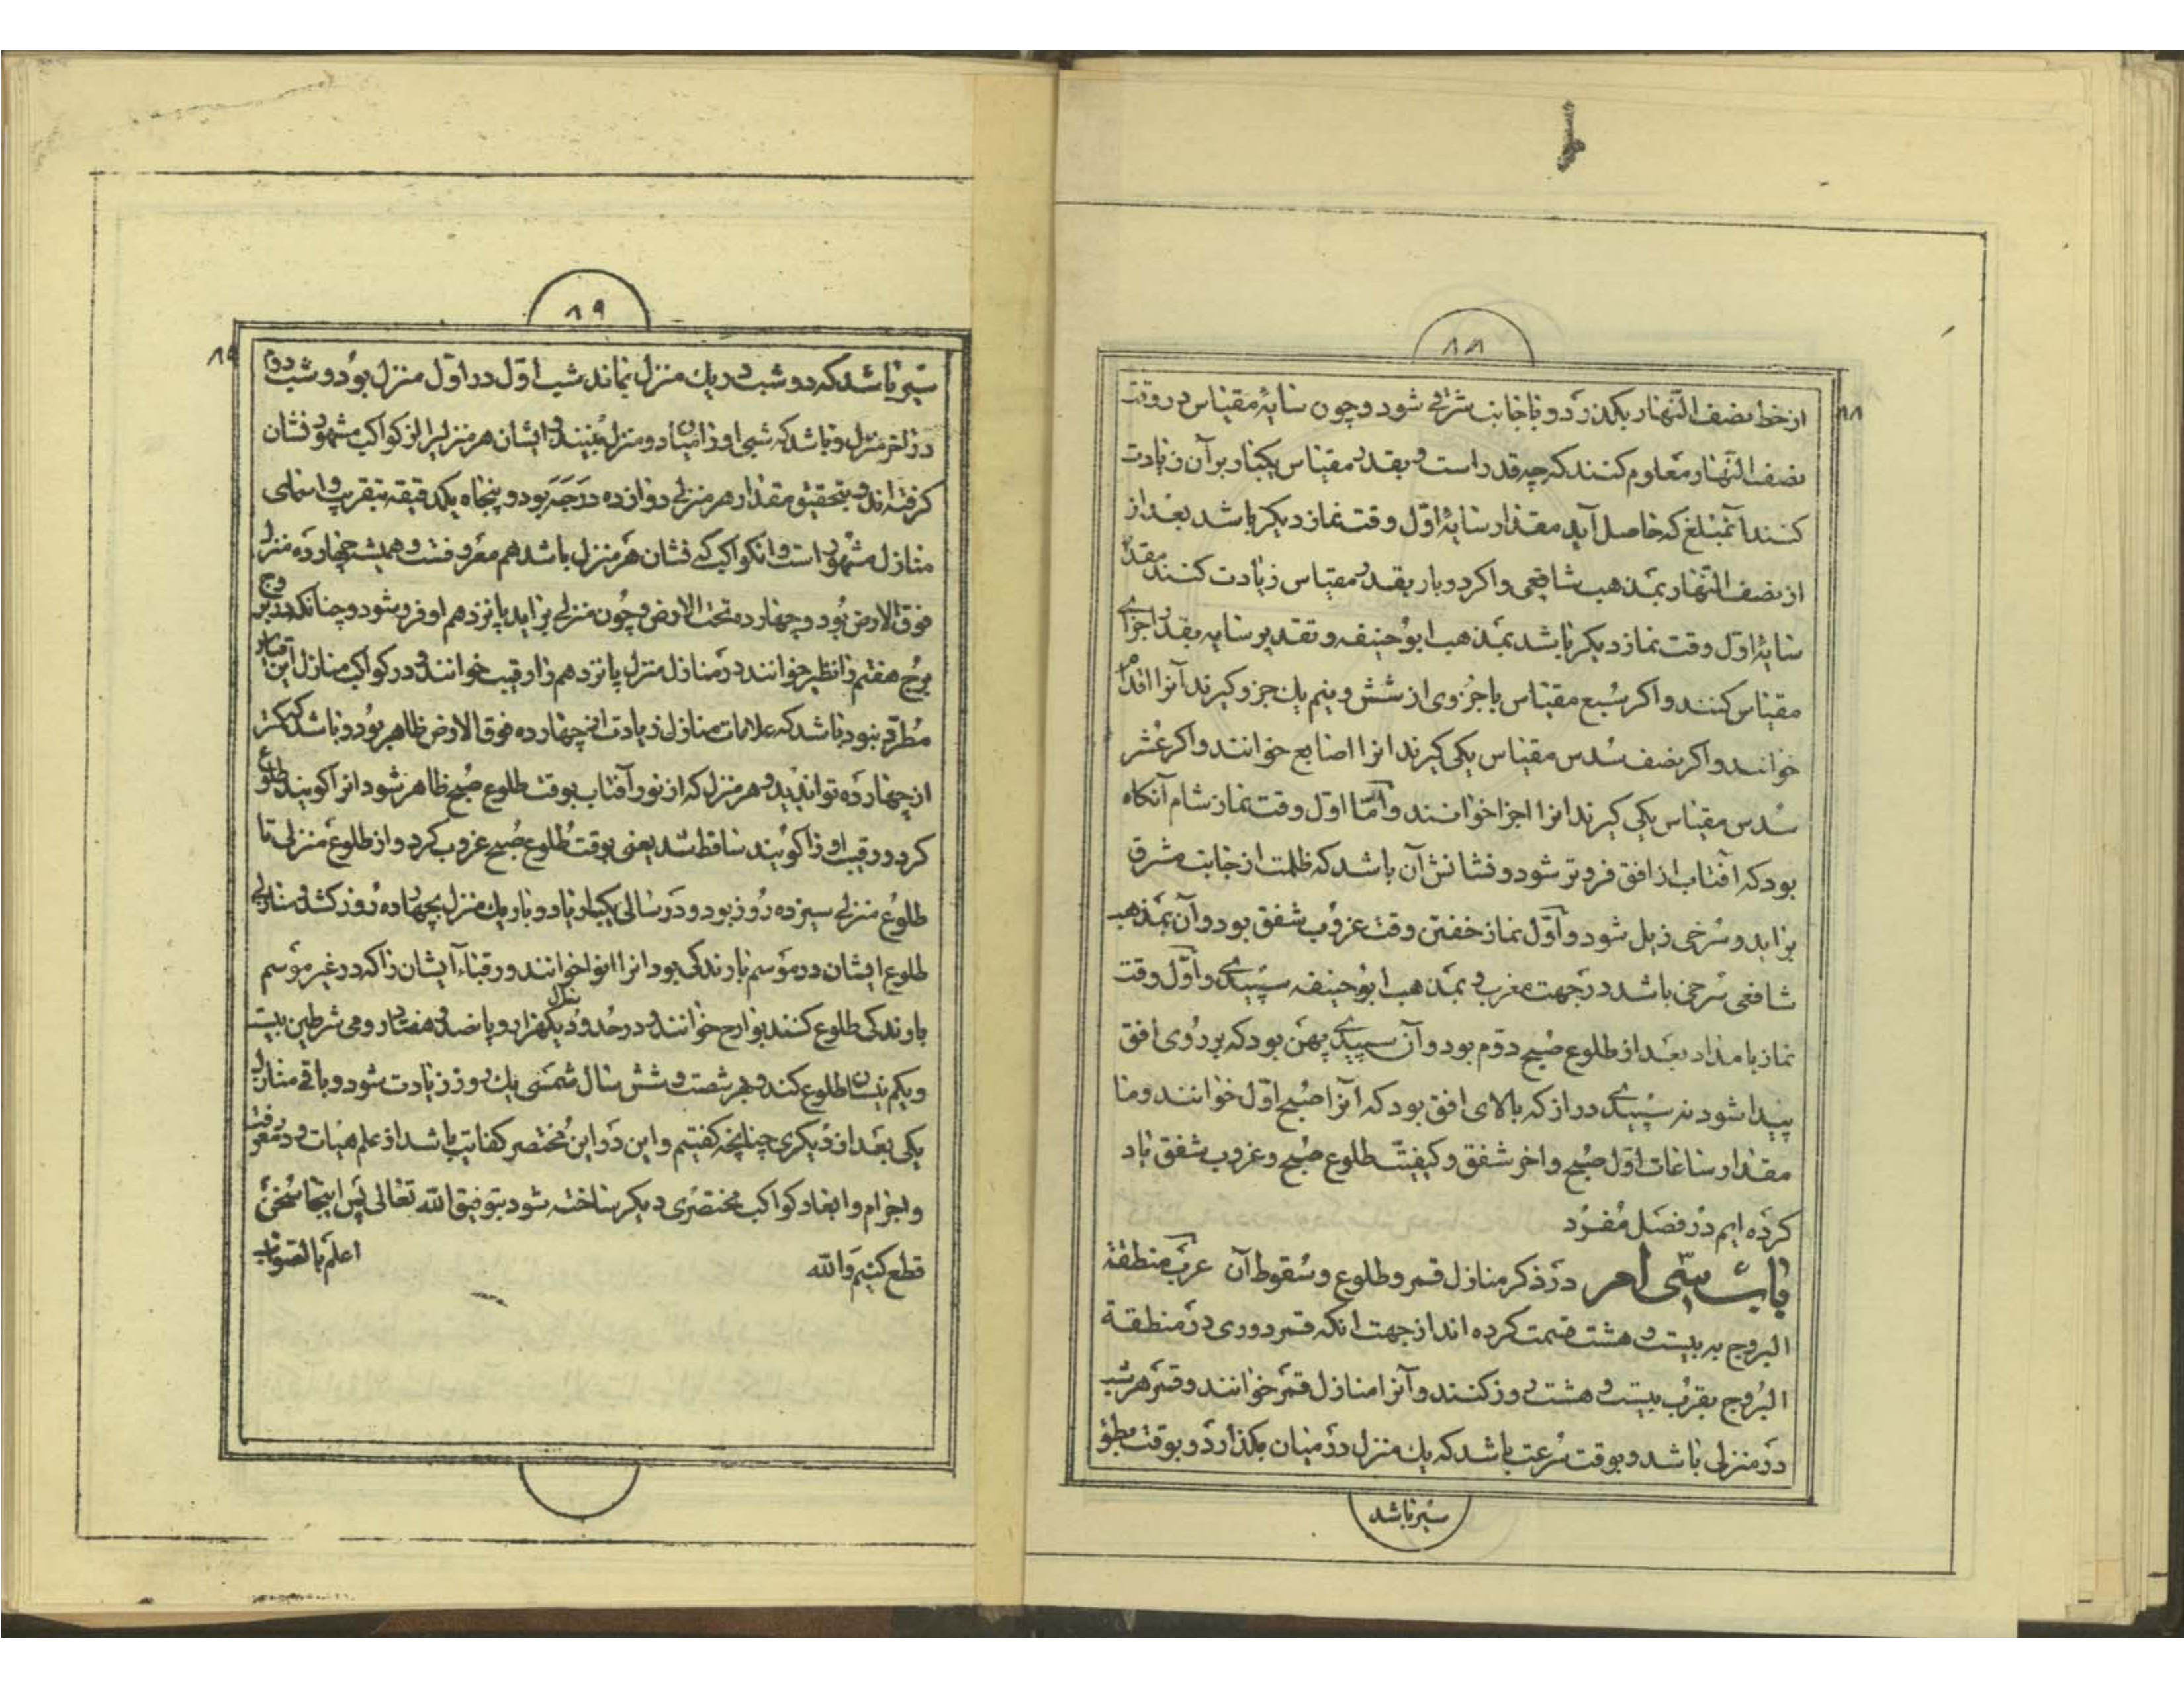 ۸۸
۸۸
از خط نصف النّهار بکذرد و با جانب شرقی شود و چون سایۀ مقیاس در وقت
نصف النّهار معلوم کنند که چه قدر است و بقدر مقیاس یکبار بر آن زیادت
کنند آنمبلغ که حاصل آید مقدار سایۀ اوّل وقت نماز دیکر باشد بعد از
از نصف النّهار بمذهب شافعی و اکر دو بار بقدر مقیاس زیادت کنند مقدار
سایۀ اول وقت نماز دیکر باشد بمذهب ابو حنیفه و تقدیر سایه بقدر اجزای
مقیاس کنند و اکر سُبع مقیاس یا جزوی از شش و نیم یك جزو کیرند آنرا اقدام
خوانند و اکر نصف سُدس مقیاس یکی کیرند انرا اصابع خوانند و اکر عُشر
سُدس مقیاس یکی کیرند انرا اجزا خوانند و امّا اوّل وقت نماز شام آنکاه
بود که آفتاب از افق فروتر شود و نشانش آن باشد که ظلمت از جانب مشرق
بزاید و سُرخی زیل شود و اوّل نماز خفتن وقت غروب شفق بود و آن بمذهب
شافعی سُرخی باشد در جهت مغرب و بمذهب ابو حنیفه سپیدی و اوّل وقت
نماز بامداد بعد از طلوع صبح دوم بود و آن سپیدی پهن بود که بر رُوی افق
پیدا شود نه سپیدی دراز که بالای افق بود که آنرا صبح اوّل خوانند و ما
مقدار ساعات اوّل صبح و اخر شفق و کیفیّت طلوع صبح و غروب شفق یاد
کرده ایم در فصل مُفرد
باب سی ام در ذکر منازل قمر و طلوع و سُقوط آن عرب منطقة
البروج به بیست و هشت قسمت کرده اند از جهت انکه قمر دوری در منطقة
البُروج بقرُب بیست و هشت روز کنند و آنرا منازل قمر خوانند و قمر هر شب
در منزلی باشد و بوقت سُرعت باشد که یك منزل در میان بکذارد و بوقت بطؤ
سیر باشد
۸۹
۸۹
سیر باشد که دو شب در یك منزل بماند شب اوّل در اوّل منزل بود و شب دوم
در اخر منزل و باشد که شبی او را میان دو منزل بینند و ایشان هر منزلیرا از کواکب مشهور نشان
کرفته اند و بتحقیق مقدار هر منزلی دوازده درَجَه بود و پنجاه یکدقیقه بتقریب و اسمای
منازل مشهور است و انکواکب که نشان هر منزل باشد هم معروفست و همیشه چهارده منزل
فوق الارض بُود و چهارده تحت الارض و چون منزلی براید پانزدهم او فرو شود و چنانکه در بروج
برُج هفتم را نظیر خوانند در منازل منزل پانزدهم را رقیب خوانند و در کواکب منازل این قیاس
مُطرّد نبود باشد که علامات منازل زیادت از چهارده فوق الارض ظاهر بُود و باشد که کمتر
از چهارده توان دید و هر منزل که از نور آفتاب بوقت طلوع صُبح ظاهر شود انرا کویند طلوع
کرد و رقیب او را کویند ساقط شد یعنی بوقت طلوع صُبح غروب کرد و از طلوع منزلی تا
طلوع منزلی سیزده روز بود و در سالی یکبار یا دو بار یك منزل بچهارده رُوز کشد و منازلی
طلوع ایشان در موسم بارندکی بود انرا انوا خوانند و رقباء ایشان را که در غیر موسم
بارندکی طلوع کنند بوارح خوانند و در حُدود سال یکهزار و پانصد و هفتاد رومی شرطین بیست
و یکم نیسان طلوع کند و بهر شصت و شش سال شمسی یك روز زیادت شود و باقی منازل
یکی بعد از دیکری چنانچه کفتیم و این در این مُختصر کفایت باشد از علم هیات و در معرفت
و اجرام و ابعاد کواکب مختصری دیکر ساخته شود بتوفیق الله تعالی پس اینجا سُخن
قطع کنیم وَالله اعلم بالصّواب